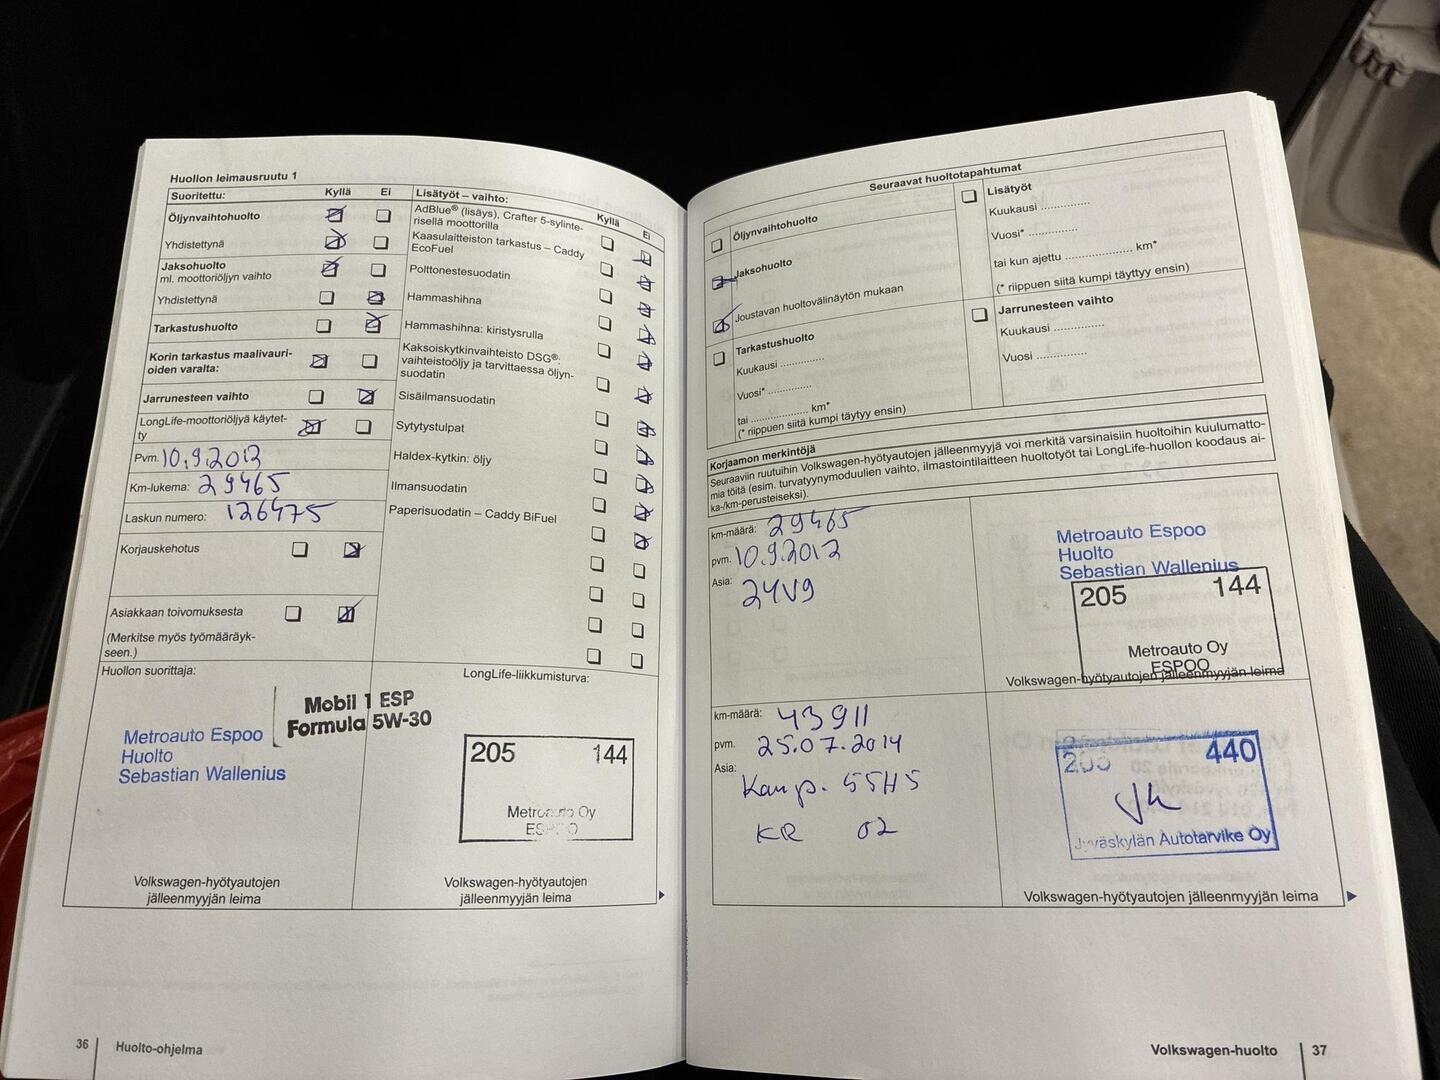 Huollon leimausruutu 1
Suoritettu:
Kyllä
Ei
Öljynvaihtohuolto
Yhdistettynä
Jaksohuolto
ml. moottoriöljyn vaihto
Yhdistettynä
Tarkastushuolto
Korin tarkastus maalivauri-
oiden varalta:
Jarrunesteen vaihto
LongLife-moottoriöljyä käytet-
ty
Pvm. 10.9.2012
Km-lukema: 29465
Laskun numero: 126475
Korjauskehotus
Asiakkaan toivomuksesta
(Merkitse myös työmääräyk-
seen.)
Lisätyöt – vaihto:
Kyllä
Ei
AdBlue® (lisäys), Crafter 5-sylinte-
risellä moottorilla
Kaasulaitteiston tarkastus – Caddy
EcoFuel
Polttonestesuodatin
Hammashihna
Hammashihna: kiristysrulla
Kaksoiskytkinvaihteisto DSG®:
vaihteistoöljy ja tarvittaessa öljyn-
suodatin
Sisäilmansuodatin
Sytytystulpat
Haldex-kytkin: öljy
Ilmansuodatin
Paperisuodatin – Caddy BiFuel
Huollon suorittaja:
Mobil 1 ESP
Formula 5W-30
Metroauto Espoo
Huolto
Sebastian Wallenius
Volkswagen-hyötyautojen
jälleenmyyjän leima
LongLife-liikkumisturva:
205 144
Metroauto Oy
ESPOO
Volkswagen-hyötyautojen
jälleenmyyjän leima
36
Huolto-ohjelma
Seuraavat huoltotapahtumat
Öljynvaihtohuolto
Jaksohuolto
Joustavan huoltovälinäytön mukaan
Tarkastushuolto
Kuukausi ...............
Vuosi* ...............
tai .................... km*
(* riippuen siitä kumpi täytyy ensin)
Lisätyöt
Kuukausi ...............
Vuosi* ...............
tai kun ajettu .................... km*
(* riippuen siitä kumpi täyttyy ensin)
Jarrunesteen vaihto
Kuukausi ...............
Vuosi ...............
Korjaamon merkintöjä
Seuraaviin ruutuihin Volkswagen-hyötyautojen jälleenmyyjä voi merkitä varsinaisiin huoltoihin kuulumatto-
mia töitä (esim. turvatyynymoduulien vaihto, ilmastointilaitteen huoltotyöt tai LongLife-huollon koodaus ai-
ka-/km-perusteiseksi).
km-määrä: 29465
pvm. 10.9.2012
Asia: 24V9
Metroauto Espoo
Huolto
Sebastian Wallenius
205 144
Metroauto Oy
ESPOO
Volkswagen-hyötyautojen jälleenmyyjän leima
km-määrä: 43911
pvm. 25.07.2014
Asia: Kamp. 55H5
KR 02
440
Jyväskylän Autotarvike Oy
Volkswagen-hyötyautojen jälleenmyyjän leima
Volkswagen-huolto
37